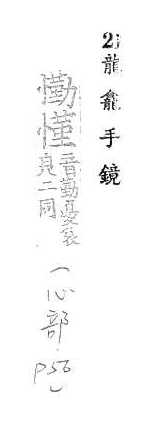 2)龍龕手鏡
懄慬音勤憂哀
皃二同
(心部.p56)